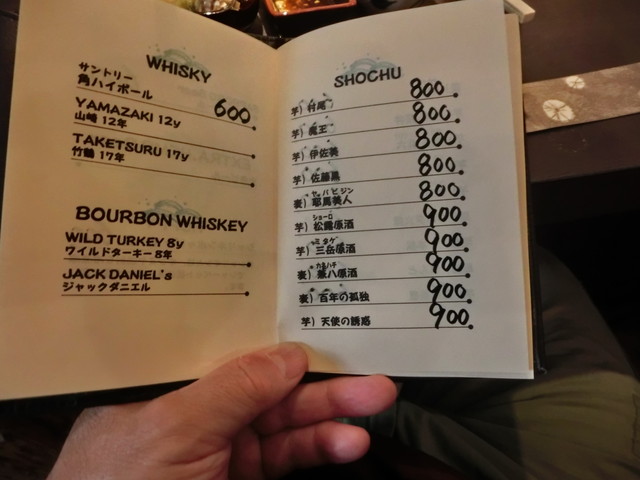 WHISKY
サントリー
角ハイボール 600
YAMAZAKI 12y
山崎 12年
TAKETSURU 17y
竹鶴 17年
BOURBON WHISKEY
WILD TURKEY 8y
ワイルドターキー 8年
JACK DANIEL's
ジャックダニエル
SHOCHU
芋) 村尾 800
芋) 魔王 800
芋) 伊佐美 800
芋) 佐藤黒 800
ヤバビジン
麦) 耶馬美人 800
ショーロ
芋) 松露原酒 900
ミタケ
芋) 三岳原酒 900
カネハチ
麦) 兼八原酒 900
麦) 百年の孤独 900
芋) 天使の誘惑 900